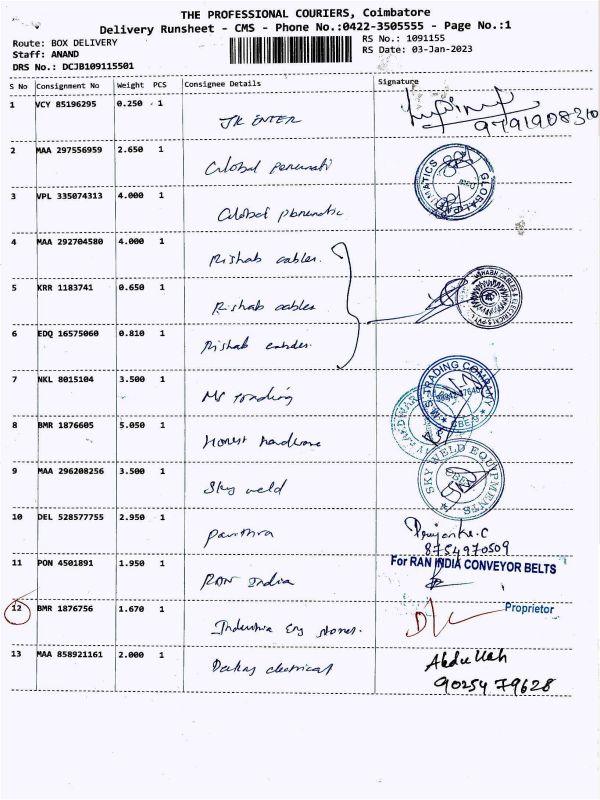 THE PROFESSIONAL COURIERS, Coimbatore
Delivery Runsheet - CMS - Phone No.:0422-3505555 - Page No.:1
Route: BOX DELIVERY
Staff: ANAND
DRS No.: DCJB109115501
RS No.: 1091155
RS Date: 03-Jan-2023
S No Consignment No Weight PCS Consignee Details Signature
1 VCY 85196295 0.250 1 JK ENTER
9791908310
2 MAA 297556959 2.650 1 Global
GLOBAL
3 VPL 335074313 4.000 1 Global
4 MAA 292704580 4.000 1 Rishab cables.
5 KRR 1183741 0.650 1 Rishab cables
6 EDQ 16575060 0.810 1 Rishab
7 NKL 8015104 3.500 1 MS Trading
M.S. TRADING COMPANY
8 BMR 1876605 5.050 1 Honest hardware
9 MAA 296208256 3.500 1 Sky weld
SKY WELD EQUIPMENTS
10 DEL 528577755 2.950 1
Priyanka.C
8754970509
11 PON 4501891 1.950 1 RAN India
For RAN INDIA CONVEYOR BELTS
Proprietor
12 BMR 1876756 1.670 1 Eng stores.
13 MAA 858921161 2.000 1 electrical
Abdullah
90254 79628